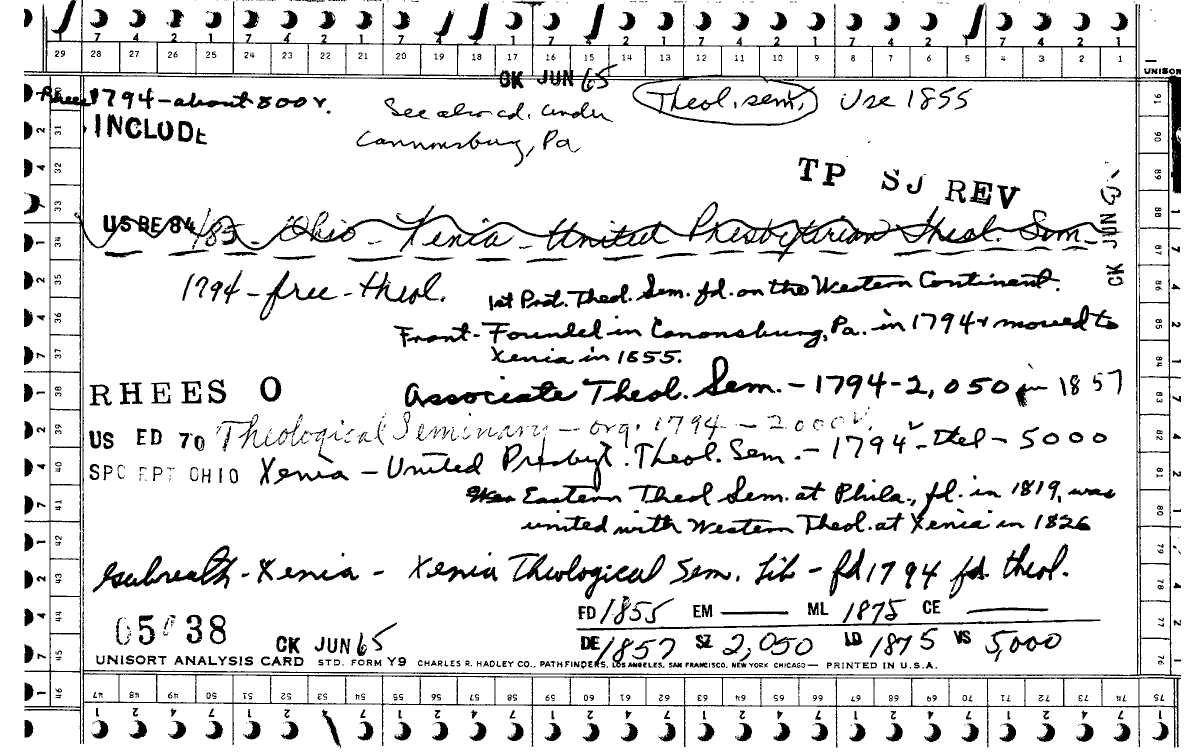 7 4 2 1 7 4 2 1 7 4 2 1 7 4 2 1 7 4 2 1 7 4 2 1 7 4 2 1
29 28 27 26 25 24 23 22 21 20 19 18 17 16 15 14 13 12 11 10 9 8 7 6 5 4 3 2 1
UNISORT
CK JUN 65
Rhees 1794-about 800 v.
See also cd. under
Theol. sem. Use 1855
INCLUDE
Cannonsburg, Pa
TP SJ REV
CK JUN 6
US BE 84 185 - Ohio - Xenia - United Presbyterian Theol. Sem -
1794 - free - theol.
1st Prot. Theol. Sem. fd. on the Western Continent.
Front - Founded in Canonsburg, Pa. in 1794 & moved to
Xenia in 1855.
RHEES O Associate Theol. Sem. - 1794 - 2,050 in 1857
US ED 70 Theological Seminary - org. 1794 - 2000 v.
SPC RPT OHIO Xenia - United Presbyt. Theol. Sem. - 1794 - thel - 5000
Eastern Theol Sem. at Phila., fd. in 1819, was
united with Western Theol. at Xenia in 1826
Galbreath - Xenia - Xenia Theological Sem. Lib - fd 1794 fd. theol.
FD 1855 EM — ML 1875 CE —
05 38 CK JUN 65
DE 1857 SZ 2,050 LD 1875 VS 5,000
UNISORT ANALYSIS CARD STD. FORM Y9 CHARLES R. HADLEY CO., PATHFINDERS, LOS ANGELES, SAN FRANCISCO, NEW YORK CHICAGO — PRINTED IN U.S.A.
31 32 33 34 35 36 37 38 39 40 41 42 43 44 45 46
91 90 89 88 87 86 85 84 83 82 81 80 79 78 77 76
47 48 49 50 51 52 53 54 55 56 57 58 59 60 61 62 63 64 65 66 67 68 69 70 71 72 73 74 75